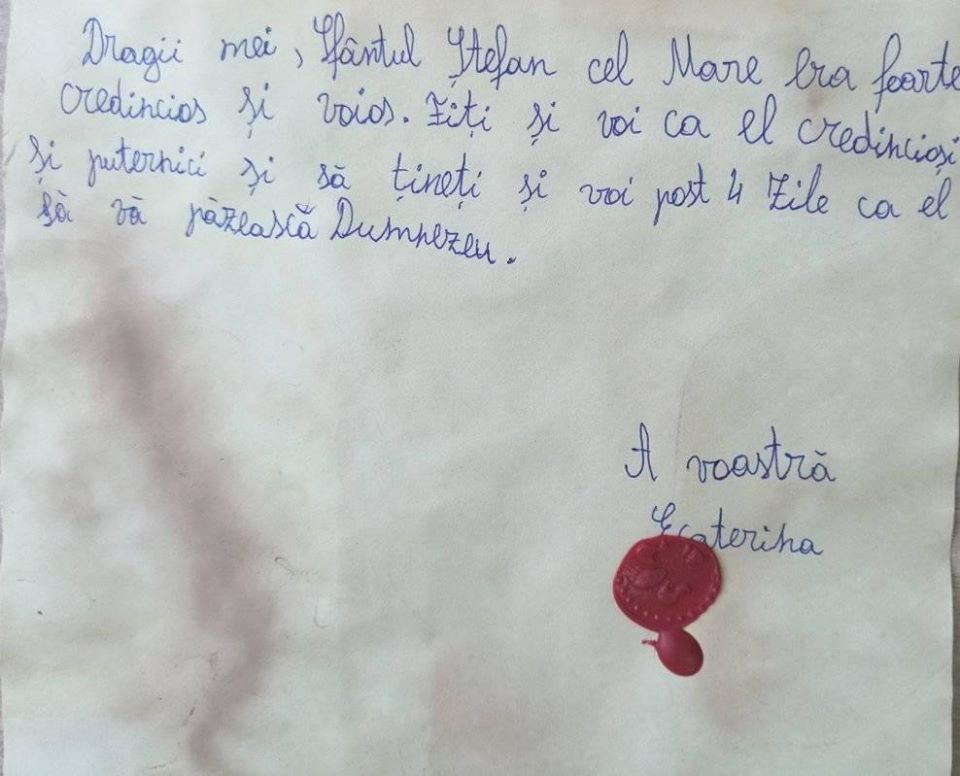 Dragii mei, Sfântul Ștefan cel Mare era foarte
credincios și voios. Fiți și voi ca el credincioși
și puternici și să țineți și voi post 4 zile ca el
să vă păzească Dumnezeu.
A voastră
Ecaterina